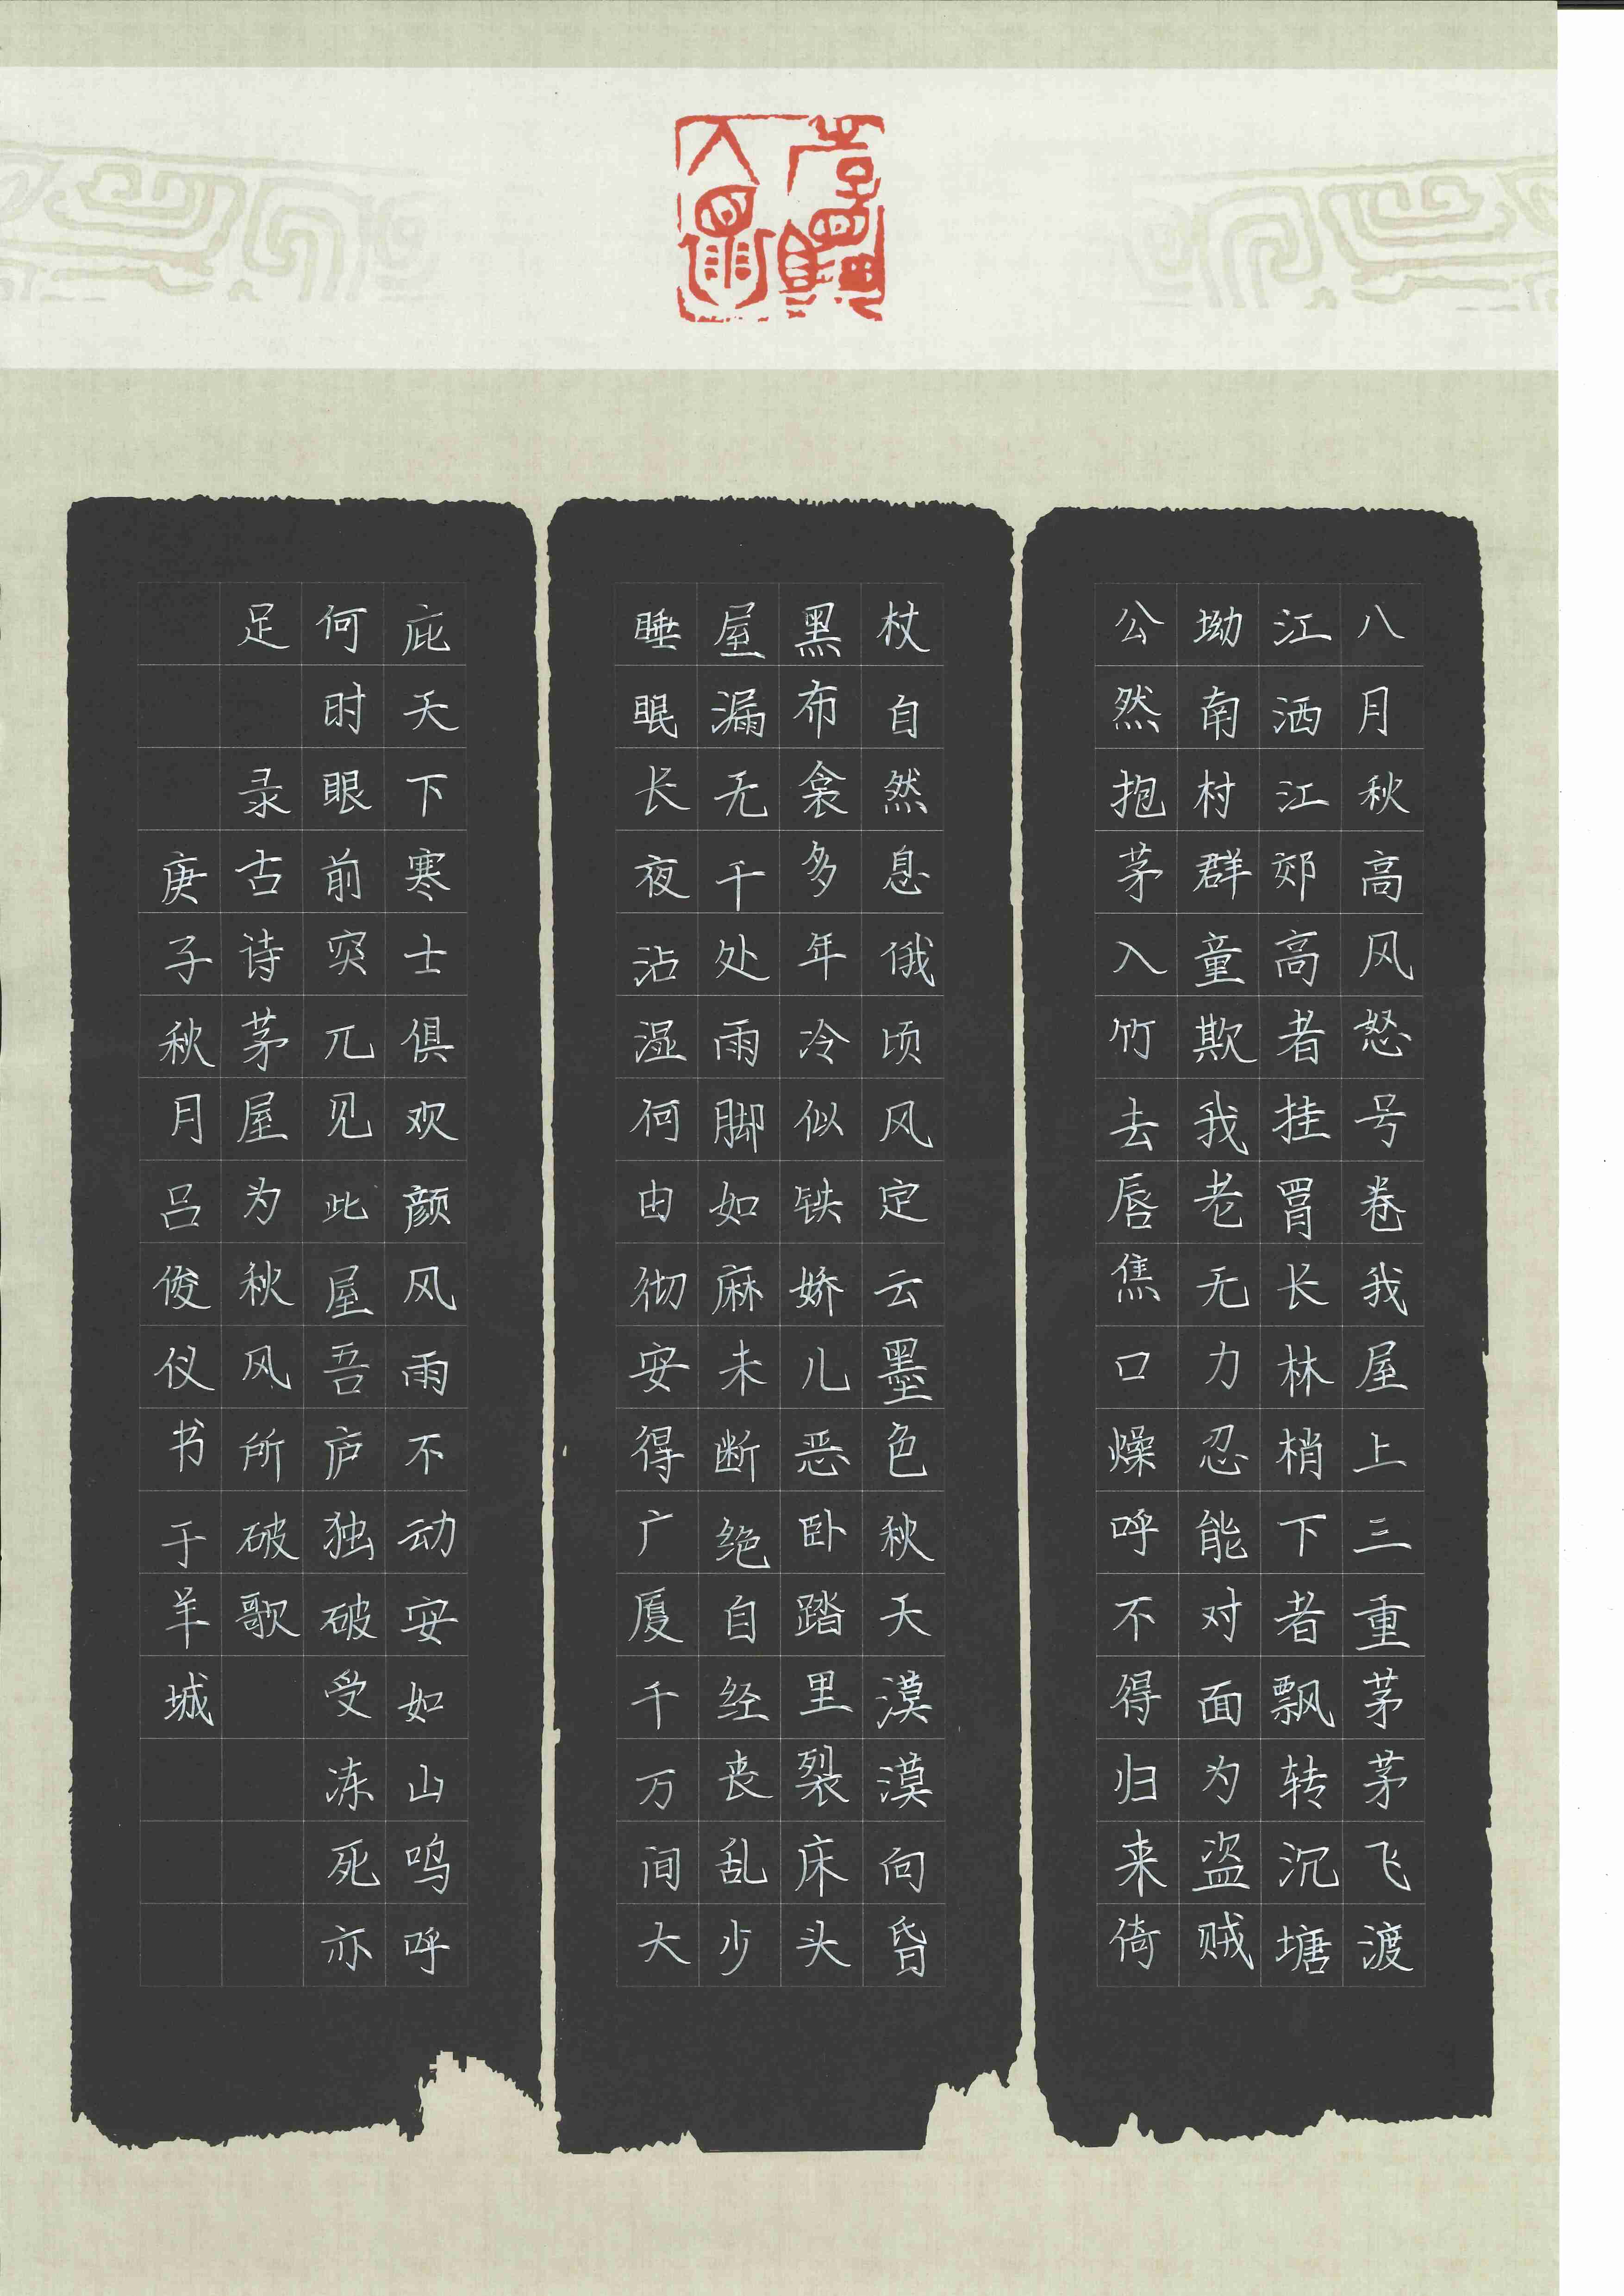 八月秋高风怒号卷我屋上三重茅茅飞渡
江洒江郊高者挂罥长林梢下者飘转沉塘
坳南村群童欺我老无力忍能对面为盗贼
公然抱茅入竹去唇焦口燥呼不得归来倚
杖自然息俄顷风定云墨色秋天漠漠向昏
黑布衾多年冷似铁娇儿恶卧踏里裂床头
屋漏无千处雨脚如麻未断绝自经丧乱少
睡眠长夜沾湿何由彻安得广厦千万间大
庇天下寒士俱欢颜风雨不动安如山呜呼
何时眼前突兀见此屋吾庐独破受冻死亦
足 录古诗茅屋为秋风所破歌
庚子秋月吕俊仪书于羊城